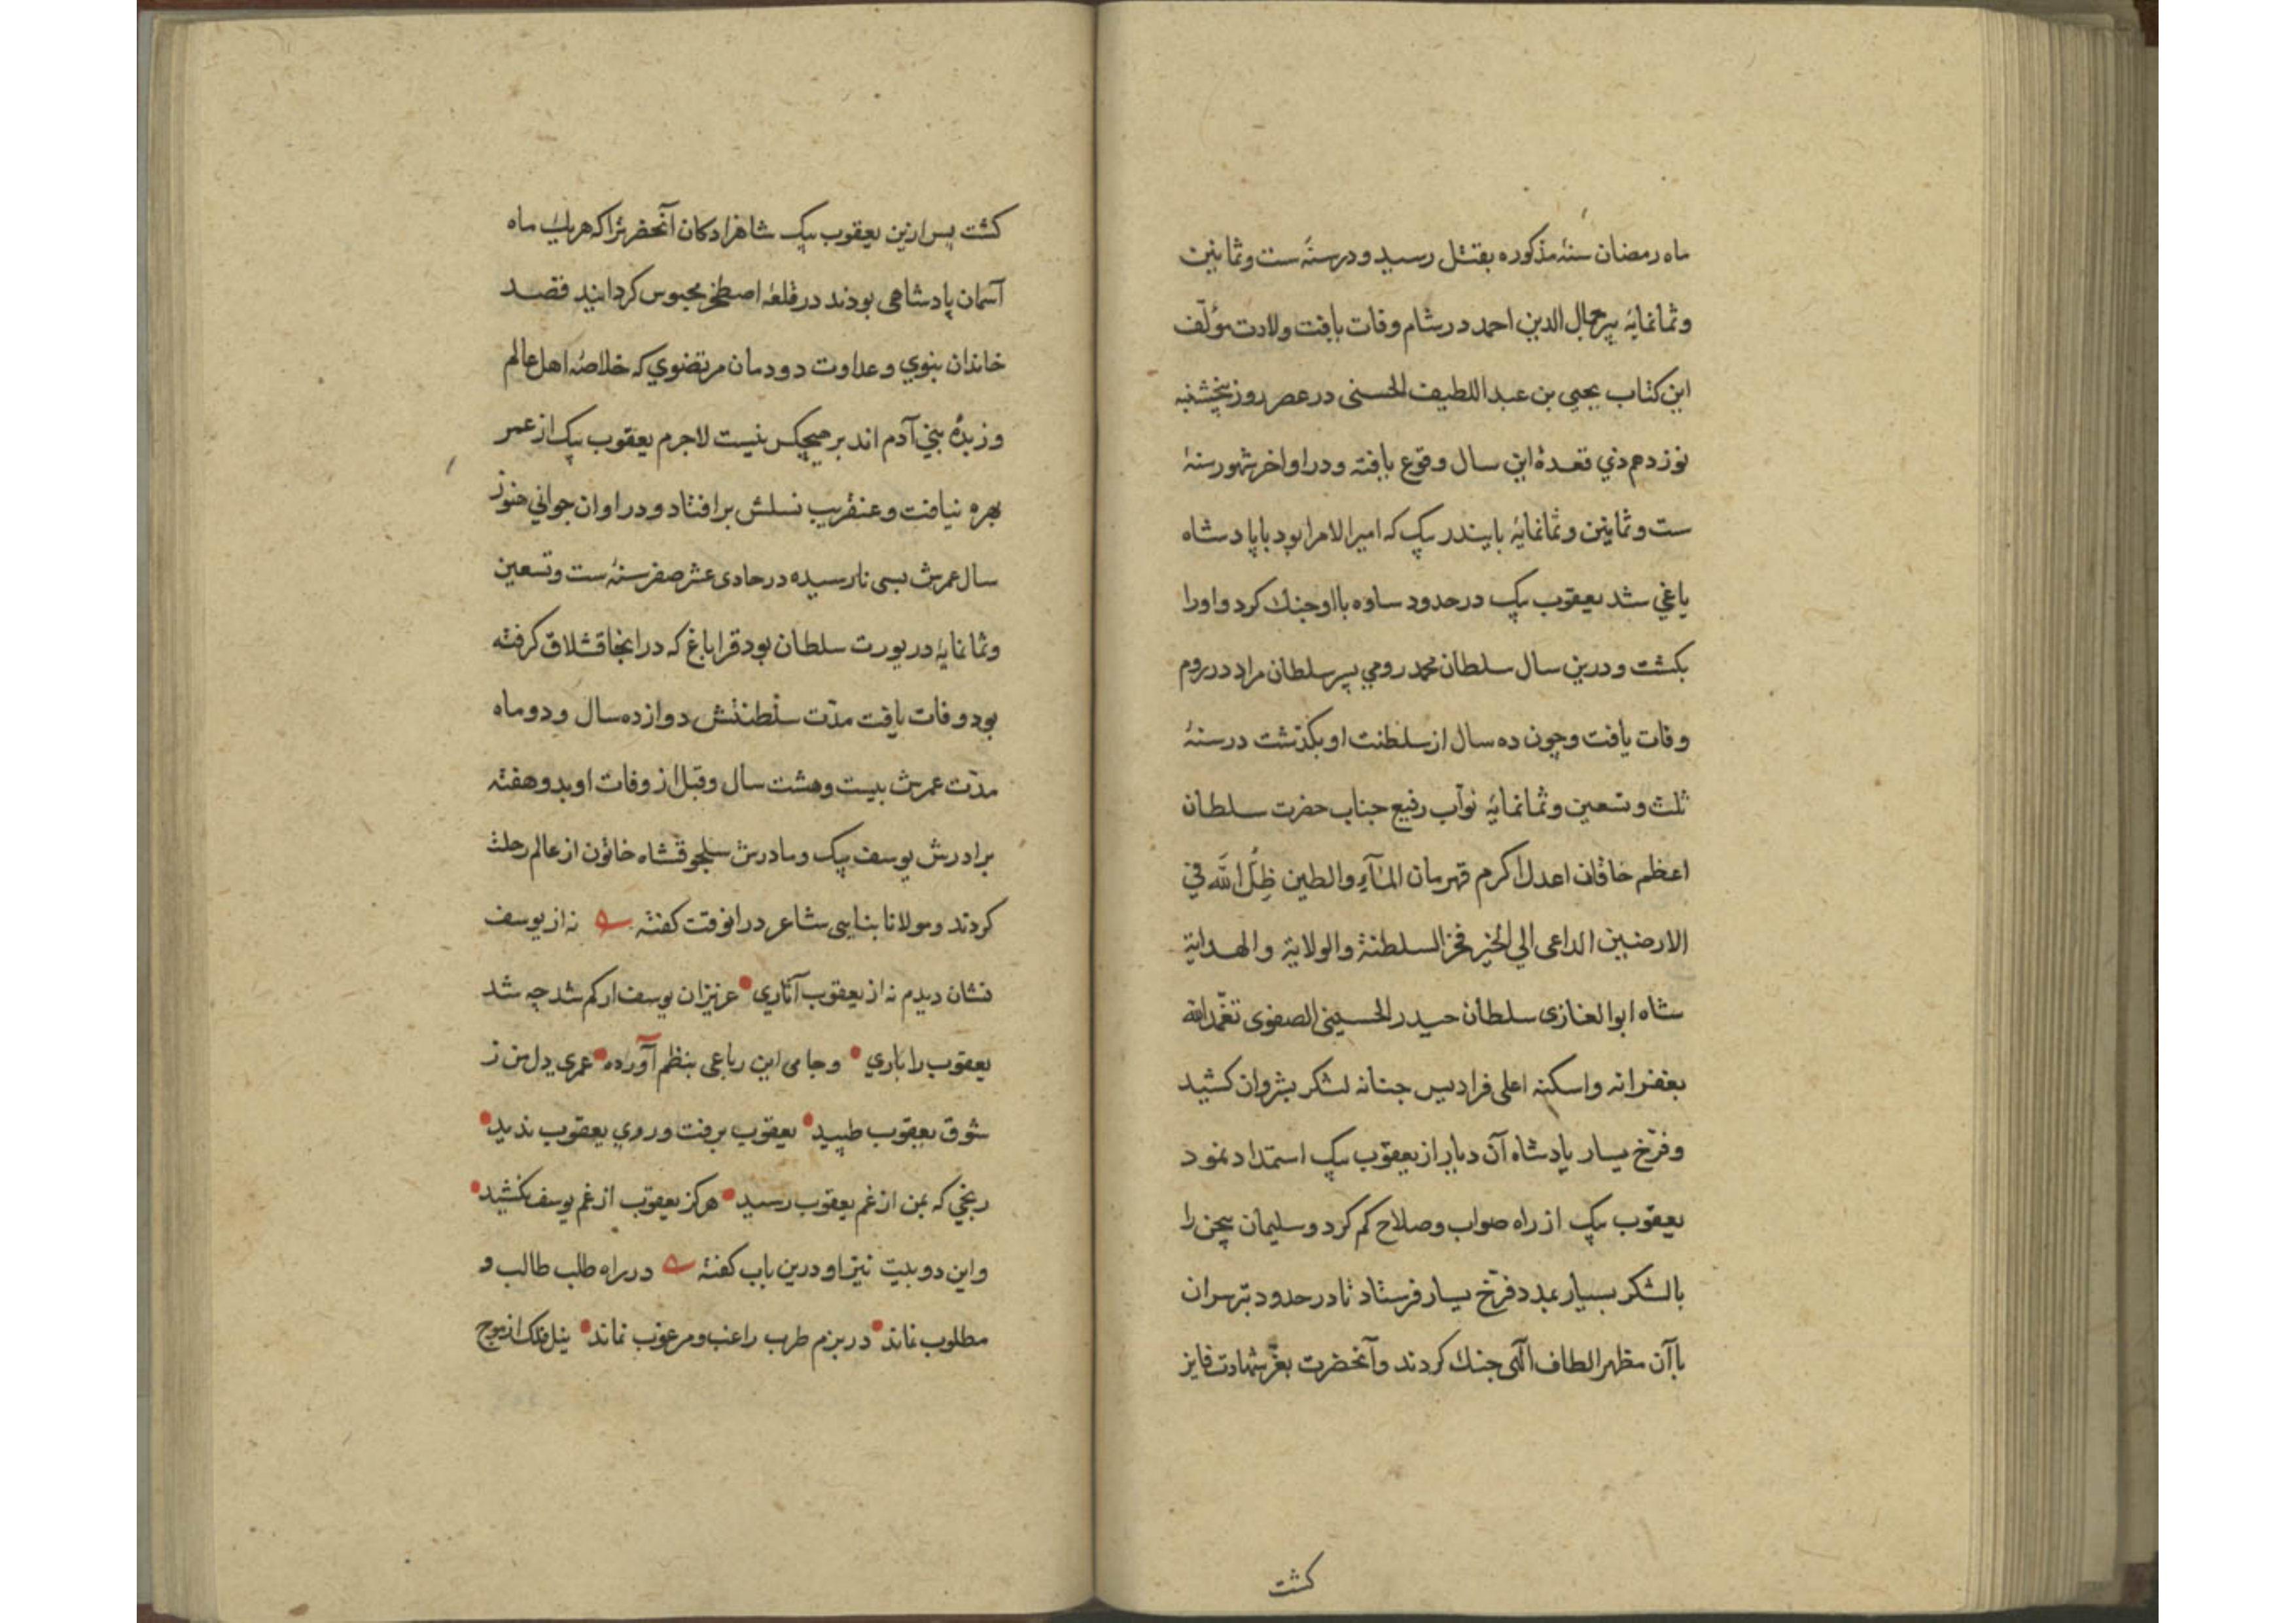 ماه رمضان سنۀ مذکوره بقتل رسید و در سنۀ ست و ثمانین
و ثمانمایۀ پیر جمال الدین احمد در شام وفات یافت ولادت مؤلّف
این کتاب یحیی بن عبد اللطیف الحسنی در عصر روز پنجشنبه
نوزدهم ذی قعدۀ این سال وقوع یافته و در اواخر شهور سنۀ
ست و ثمانین و ثمانمایۀ بایندر بیک که امیر الامرا بود با پادشاه
یاغی شد یعقوب بیک در حدود ساوه با او جنک کرد و او را
بکشت و درین سال سلطان محمد رومی پسر سلطان مراد در روم
وفات یافت و چون ده سال از سلطنت او بکذشت در سنۀ
ثلث و تسعین و ثمانمایۀ نوّاب رفیع جناب حضرت سلطان
اعظم خاقان اعدل اکرم قهرمان المآء والطین ظِلُّ اللّه فی
الارضین الداعی الی الخیر فخر السلطنة والولایة والهدایة
شاه ابوالغازی سلطان حیدر الحسینی الصفوی تغمّد الله
بغفرانه واسکنه اعلی فرادیس جنانه لشکر بشروان کشید
و فرّخ یسار پادشاه آن دیار از یعقوب بیک استمداد نمود
یعقوب بیک از راه صواب و صلاح کم کرد و سلیمان بیجن را
با لشکر بسیار بمدد فرّخ یسار فرستاد تا در حدود تبرسران
با آن مظهر الطاف الٓهی جنک کردند و آنحضرت بعزّ شهادت فایز
کشت
کشت پس ازین یعقوب بیک شاهزادکان آنحضرترا که هریک ماه
آسمان پادشاهی بودند در قلعۀ اصطخر محبوس کردانید قصد
خاندان نبوی و عداوت دودمان مرتضوی که خلاصۀ اهل عالم
و زبدۀ بنی آدم اند بر هیچکس نیست لاجرم یعقوب بیک از عمر
بهره نیافت و عنقریب نسلش برافتاد و در اوان جوانی هنوز
سال عمرش بسی نارسیده در حادی عشر صفر سنۀ ست و تسعین
و ثمانمایۀ در یورت سلطان بود قراباغ که در انجا قشلاق کرفته
بود وفات یافت مدّت سلطنتش دوازده سال و دو ماه
مدّت عمرش بیست و هشت سال و قبل از وفات او بدو هفته
برادرش یوسف بیک و مادرش سلجوقشاه خاتون از عالم رحلت
کردند و مولانا بنایی شاعر در انوقت کفته نه از یوسف
نشان دیدم نه از یعقوب آثاری عزیزان یوسف ار کم شد چه شد
یعقوب را باری و جامی این رباعی بنظم آورده عمری دل من ز
شوق یعقوب طپید یعقوب برفت و روی یعقوب ندید
رنجی که بمن از غم یعقوب رسید هرکز یعقوب از غم یوسف نکشید
و این دو بیت نیز او درین باب کفته در راه طلب طالب و
مطلوب نماند در بزم طرب راغب و مرغوب نماند نیل فلک از موج